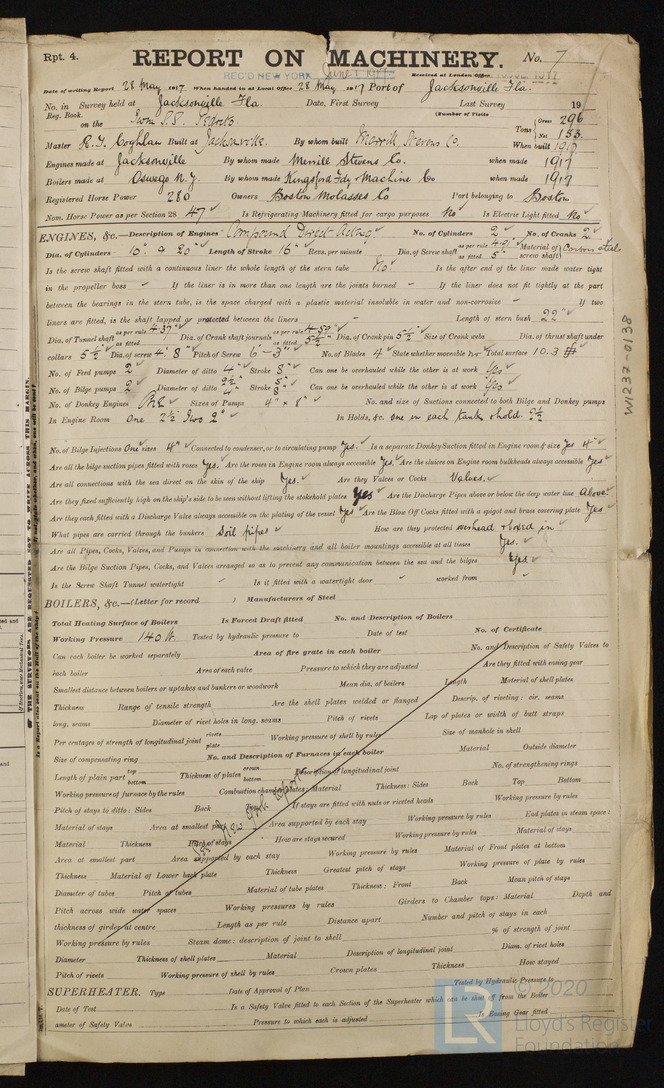 Rpt. 4.
REPORT ON MACHINERY. No. 7
REC'D NEW YORK June 1 1917
Received at London Office
Date of writing Report 28 May 1917 When handed in at Local Office 28 May 1917 Port of Jacksonville Fla.
No. in Survey held at Jacksonville Fla. Date, First Survey Last Survey 19
Reg. Book. (Number of Visits
on the Iron S.S. Gross 296
Tons Net 153
Master R. J. Coghlan Built at Jacksonville. By whom built Merrill Stevens Co. When built 1917
Engines made at Jacksonville By whom made Merrill Stevens Co. when made 1917
Boilers made at Oswego N.Y. By whom made Kingsford Fdy & Machine Co when made 1917
Registered Horse Power 280 Owners Boston Molasses Co Port belonging to Boston
Nom. Horse Power as per Section 28 47 Is Refrigerating Machinery fitted for cargo purposes No Is Electric Light fitted No
ENGINES, &c.—Description of Engines Compound Direct Acting No. of Cylinders 2 No. of Cranks 2
Dia. of Cylinders 10" & 20" Length of Stroke 16" Revs. per minute Dia. of Screw shaft as per rule 4.91 as fitted 5" Material of screw shaft Carbon steel
Is the screw shaft fitted with a continuous liner the whole length of the stern tube No. Is the after end of the liner made water tight
in the propeller boss – If the liner is in more than one length are the joints burned – If the liner does not fit tightly at the part
between the bearings in the stern tube, is the space charged with a plastic material insoluble in water and non-corrosive – If two
liners are fitted, is the shaft lapped or protected between the liners – Length of stern bush 22"
Dia. of Tunnel shaft as per rule 4.37" as fitted Dia. of Crank shaft journals as per rule 4.59" as fitted 5½" Dia. of Crank pin 5½" Size of Crank webs Dia. of thrust shaft under
collars 5½" Dia. of screw 4'. 8" Pitch of Screw 6'–3" No. of Blades 4 State whether moveable no Total surface 10.3 #
No. of Feed pumps 2 Diameter of ditto 4" Stroke 8" Can one be overhauled while the other is at work Yes
No. of Bilge pumps 2 Diameter of ditto 2½" 4" Stroke 5" 8" Can one be overhauled while the other is at work Yes
No. of Donkey Engines One Sizes of Pumps 4" x 8" No. and size of Suctions connected to both Bilge and Donkey pumps
In Engine Room One 2½ Two 2" In Holds, &c. one in each tank & hold. 2½
No. of Bilge Injections One sizes 4" Connected to condenser, or to circulating pump Yes. Is a separate Donkey Suction fitted in Engine room & size Yes 4"
Are all the bilge suction pipes fitted with roses Yes. Are the roses in Engine room always accessible Yes Are the sluices on Engine room bulkheads always accessible Yes
Are all connections with the sea direct on the skin of the ship Yes. Are they Valves or Cocks Valves.
Are they fixed sufficiently high on the ship's side to be seen without lifting the stokehold plates Yes Are the Discharge Pipes above or below the deep water line Above.
Are they each fitted with a Discharge Valve always accessible on the plating of the vessel Yes Are the Blow Off Cocks fitted with a spigot and brass covering plate Yes
What pipes are carried through the bunkers Soil pipes How are they protected overhead & board in
Are all Pipes, Cocks, Valves, and Pumps in connection with the machinery and all boiler mountings accessible at all times Yes.
Are the Bilge Suction Pipes, Cocks, and Valves arranged so as to prevent any communication between the sea and the bilges Yes
Is the Screw Shaft Tunnel watertight Is it fitted with a watertight door worked from
BOILERS, &c.—(Letter for record ) Manufacturers of Steel
Total Heating Surface of Boilers Is Forced Draft fitted No. and Description of Boilers
Working Pressure 140 lb. Tested by hydraulic pressure to Date of test No. of Certificate
Can each boiler be worked separately Area of fire grate in each boiler No. and Description of Safety Valves to
each boiler Area of each valve Pressure to which they are adjusted Are they fitted with easing gear
Smallest distance between boilers or uptakes and bunkers or woodwork Mean dia. of boilers Length Material of shell plates
Thickness Range of tensile strength Are the shell plates welded or flanged Descrip. of riveting: cir. seams
long. seams Diameter of rivet holes in long. seams Pitch of rivets Lap of plates or width of butt straps
Per centages of strength of longitudinal joint rivets plate Working pressure of shell by rules Size of manhole in shell
Size of compensating ring No. and Description of Furnaces in each boiler Material Outside diameter
Length of plain part top bottom Thickness of plates crown bottom Description of longitudinal joint No. of strengthening rings
Working pressure of furnace by the rules Combustion chamber plates: Material Thickness: Sides Back Top Bottom
Pitch of stays to ditto: Sides Back Top If stays are fitted with nuts or riveted heads Working pressure by rules
See New York Report
Material of stays Area at smallest part Area supported by each stay Working pressure by rules End plates in steam space:
Material Thickness Pitch of stays How are stays secured Working pressure by rules Material of stays
Area at smallest part Area supported by each stay Working pressure by rules Material of Front plates at bottom
Thickness Material of Lower back plate Thickness Greatest pitch of stays Working pressure of plate by rules
Diameter of tubes Pitch of tubes Material of tube plates Thickness: Front Back Mean pitch of stays
Pitch across wide water spaces Working pressures by rules Girders to Chamber tops: Material Depth and
thickness of girder at centre Length as per rule Distance apart Number and pitch of stays in each
Working pressure by rules Steam dome: description of joint to shell % of strength of joint
Diameter Thickness of shell plates Material Description of longitudinal joint Diam. of rivet holes
Pitch of rivets Working pressure of shell by rules Crown plates Thickness How stayed
SUPERHEATER. Type Date of Approval of Plan Tested by Hydraulic Pressure to
Date of Test Is a Safety Valve fitted to each Section of the Superheater which can be shut off from the Boiler
ameter of Safety Valve Pressure to which each is adjusted Is Easing Gear fitted
W1237-0138
THE SURVEYORS ARE REQUESTED NOT TO WRITE ACROSS THIS MARGIN.
© 2020
LR
Lloyd's Register
Foundation